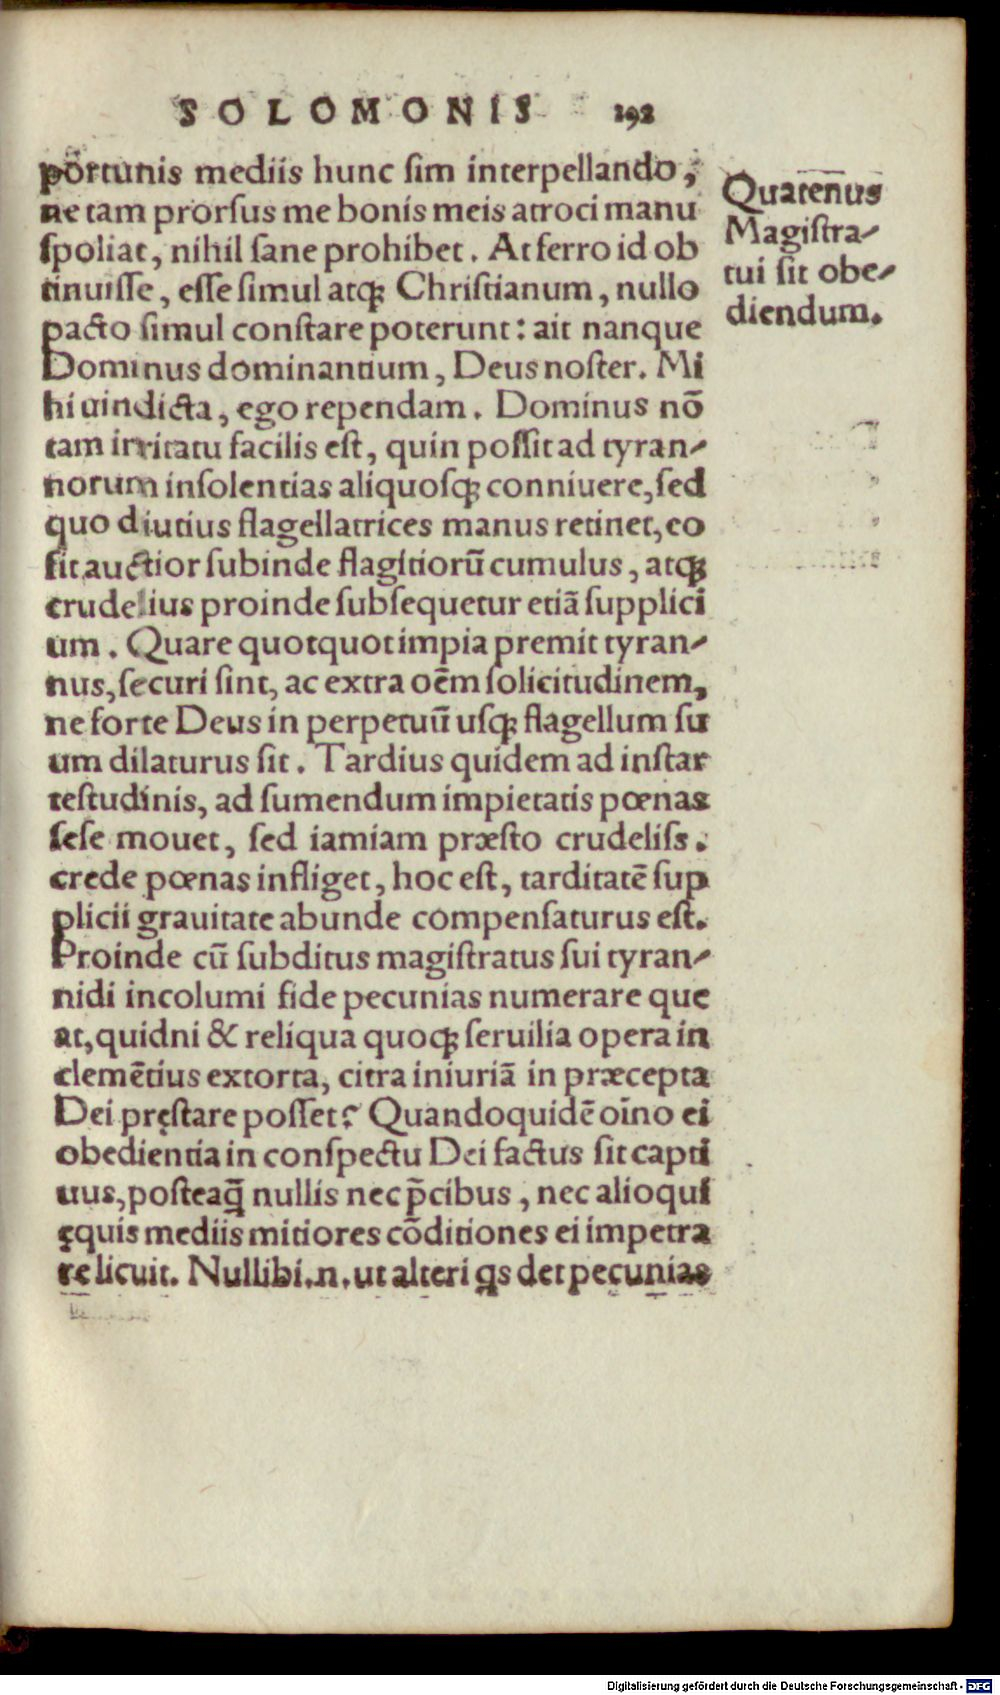 SOLOMONIS 192
portunis mediis hunc sim interpellando,
ne tam prorsus me bonis meis atroci manu
spoliat, nihil sane prohibet. At ferro id ob
tinuisse, esse simul atqꝫ Christianum, nullo
pacto simul constare poterunt: ait nanque
Dominus dominantium, Deus noster. Mi
hi uindicta, ego rependam. Dominus nõ
tam irritatu facilis est, quin possit ad tyran-
norum insolentias aliquosqꝫ conniuere, sed
quo diutius flagellatrices manus retinet, eo
fit auctior subinde flagitiorũ cumulus, atqꝫ
crudelius proinde subsequetur etiã supplici
um. Quare quotquot impia premit tyran-
nus, securi sint, ac extra oẽm solicitudinem,
ne forte Deus in perpetuũ usqꝫ flagellum su
um dilaturus sit. Tardius quidem ad instar
testudinis, ad sumendum impietatis pœnas
sese mouet, sed iamiam præsto crudeliss.
crede pœnas infliget, hoc est, tarditatẽ sup
plicii grauitate abunde compensaturus est.
Proinde cũ subditus magistratus sui tyran-
nidi incolumi fide pecunias numerare que
at, quidni & reliqua quoqꝫ seruilia opera in
clemẽtius extorta, citra iniuriã in præcepta
Dei pręstare posset? Quandoquidẽ oĩno ei
obedientia in conspectu Dei factus sit capti
uus, posteaq̃ nullis nec p̃cibus, nec alioqui
ęquis mediis mitiores cõditiones ei impetra
re licuit. Nullibi .n. ut alteri qs det pecunias
Quatenus
Magistra-
tui sit obe-
diendum.
Digitalisierung gefördert durch die Deutsche Forschungsgemeinschaft - DFG